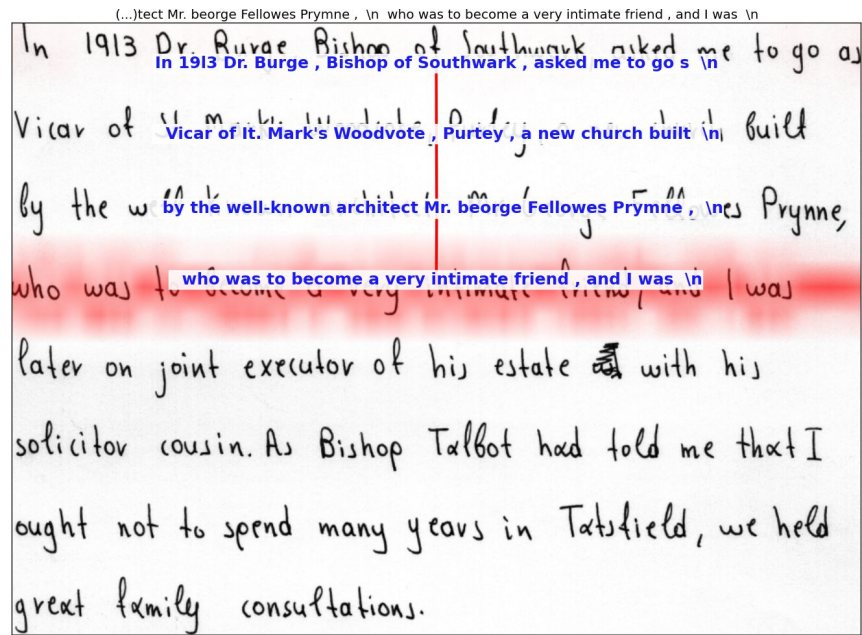 (...)tect Mr. beorge Fellowes Prymne , \n who was to become a very intimate friend , and I was \n
In 1913 Dr. Burge Bishop of Southwark asked me to go as
In 19l3 Dr. Burge , Bishop of Southwark , asked me to go s \n
Vicar of built
Vicar of It. Mark's Woodvote , Purtey , a new church built \n
by the Prynne,
by the well-known architect Mr. beorge Fellowes Prymne , \n
who was to become a very intimate friend, and I was
who was to become a very intimate friend , and I was \n
later on joint executor of his estate with his
solicitor cousin. As Bishop Talbot had told me that I
ought not to spend many years in Tatsfield, we held
great family consultations.